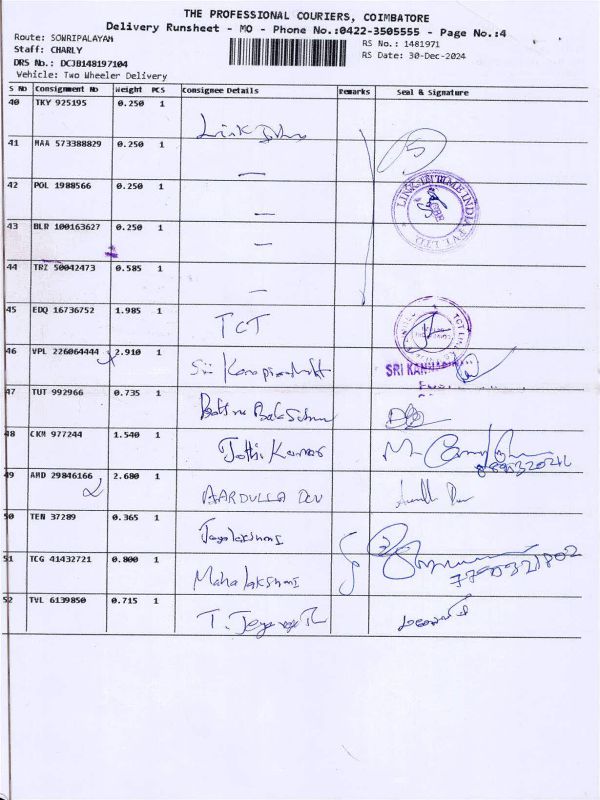 THE PROFESSIONAL COURIERS, COIMBATORE
Delivery Runsheet - MO - Phone No.:0422-3505555 - Page No.:4
Route: SOWRIPALAYAM
Staff: CHARLY
DRS No.: DCJB148197104
Vehicle: Two Wheeler Delivery
RS No.: 1481971
RS Date: 30-Dec-2024
S No Consignment No Weight PCS Consignee Details Remarks Seal & Signature
40 TKY 925195 0.250 1 Link
41 MAA 573388829 0.250 1 —
42 POL 1988566 0.250 1 —
LINK INTIME INDIA PVT LTD
43 BLR 100163627 0.250 1 —
44 TRZ 50042473 0.585 1 —
45 EDQ 16736752 1.985 1 TCT
46 VPL 226064444 2.910 1 Sri
SRI
47 TUT 992966 0.735 1
48 CKM 977244 1.540 1 Jothi Kumar
49 AMD 29846166 2.680 1
50 TEN 37289 0.365 1 Jayalakshmi
51 TCG 41432721 0.800 1 Mahalakshmi
7750321802
52 TVL 6139850 0.715 1 T.